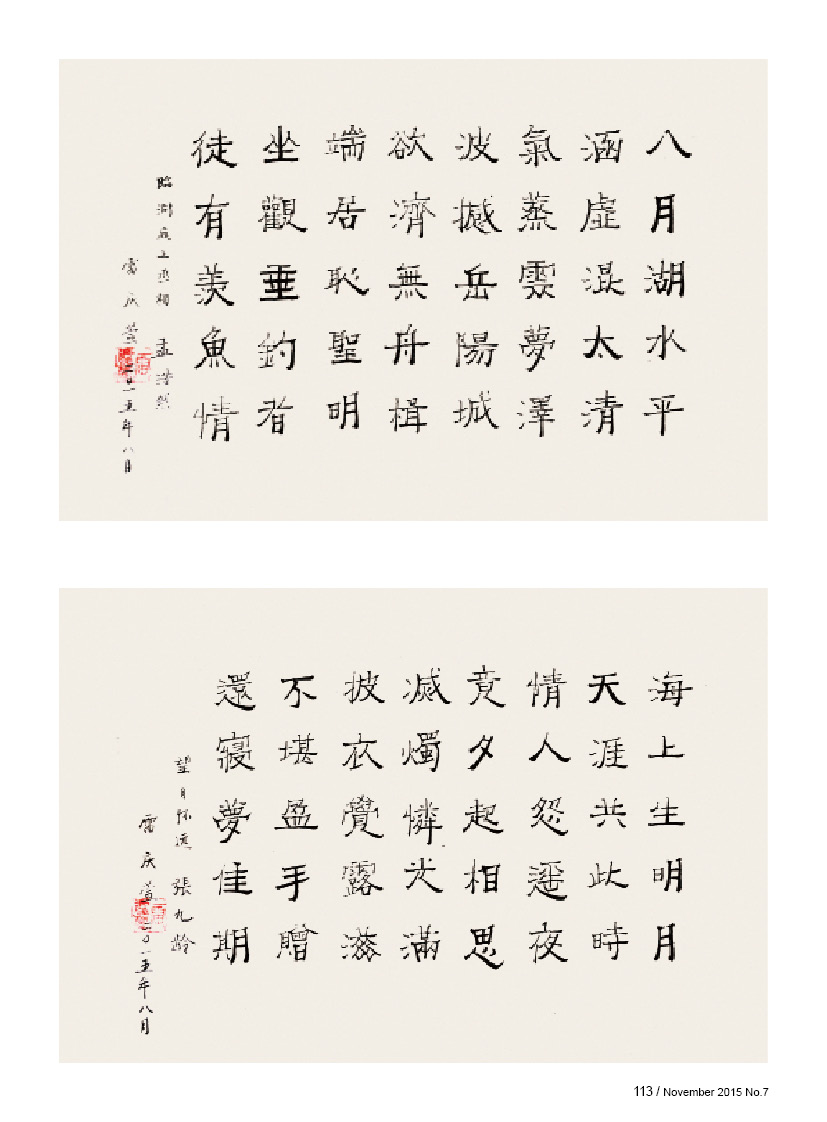 八月湖水平
涵虛混太清
氣蒸雲夢澤
波撼岳陽城
欲濟無舟楫
端居恥聖明
坐觀垂釣者
徒有羨魚情
临洞庭上丞相 孟浩然
雷庆 二〇一五年八月
海上生明月
天涯共此時
情人怨遥夜
竟夕起相思
滅燭憐光滿
披衣覺露滋
不堪盈手贈
還寢夢佳期
望月怀远 張九龄
雷庆 二〇一五年八月
113 / November 2015 No.7